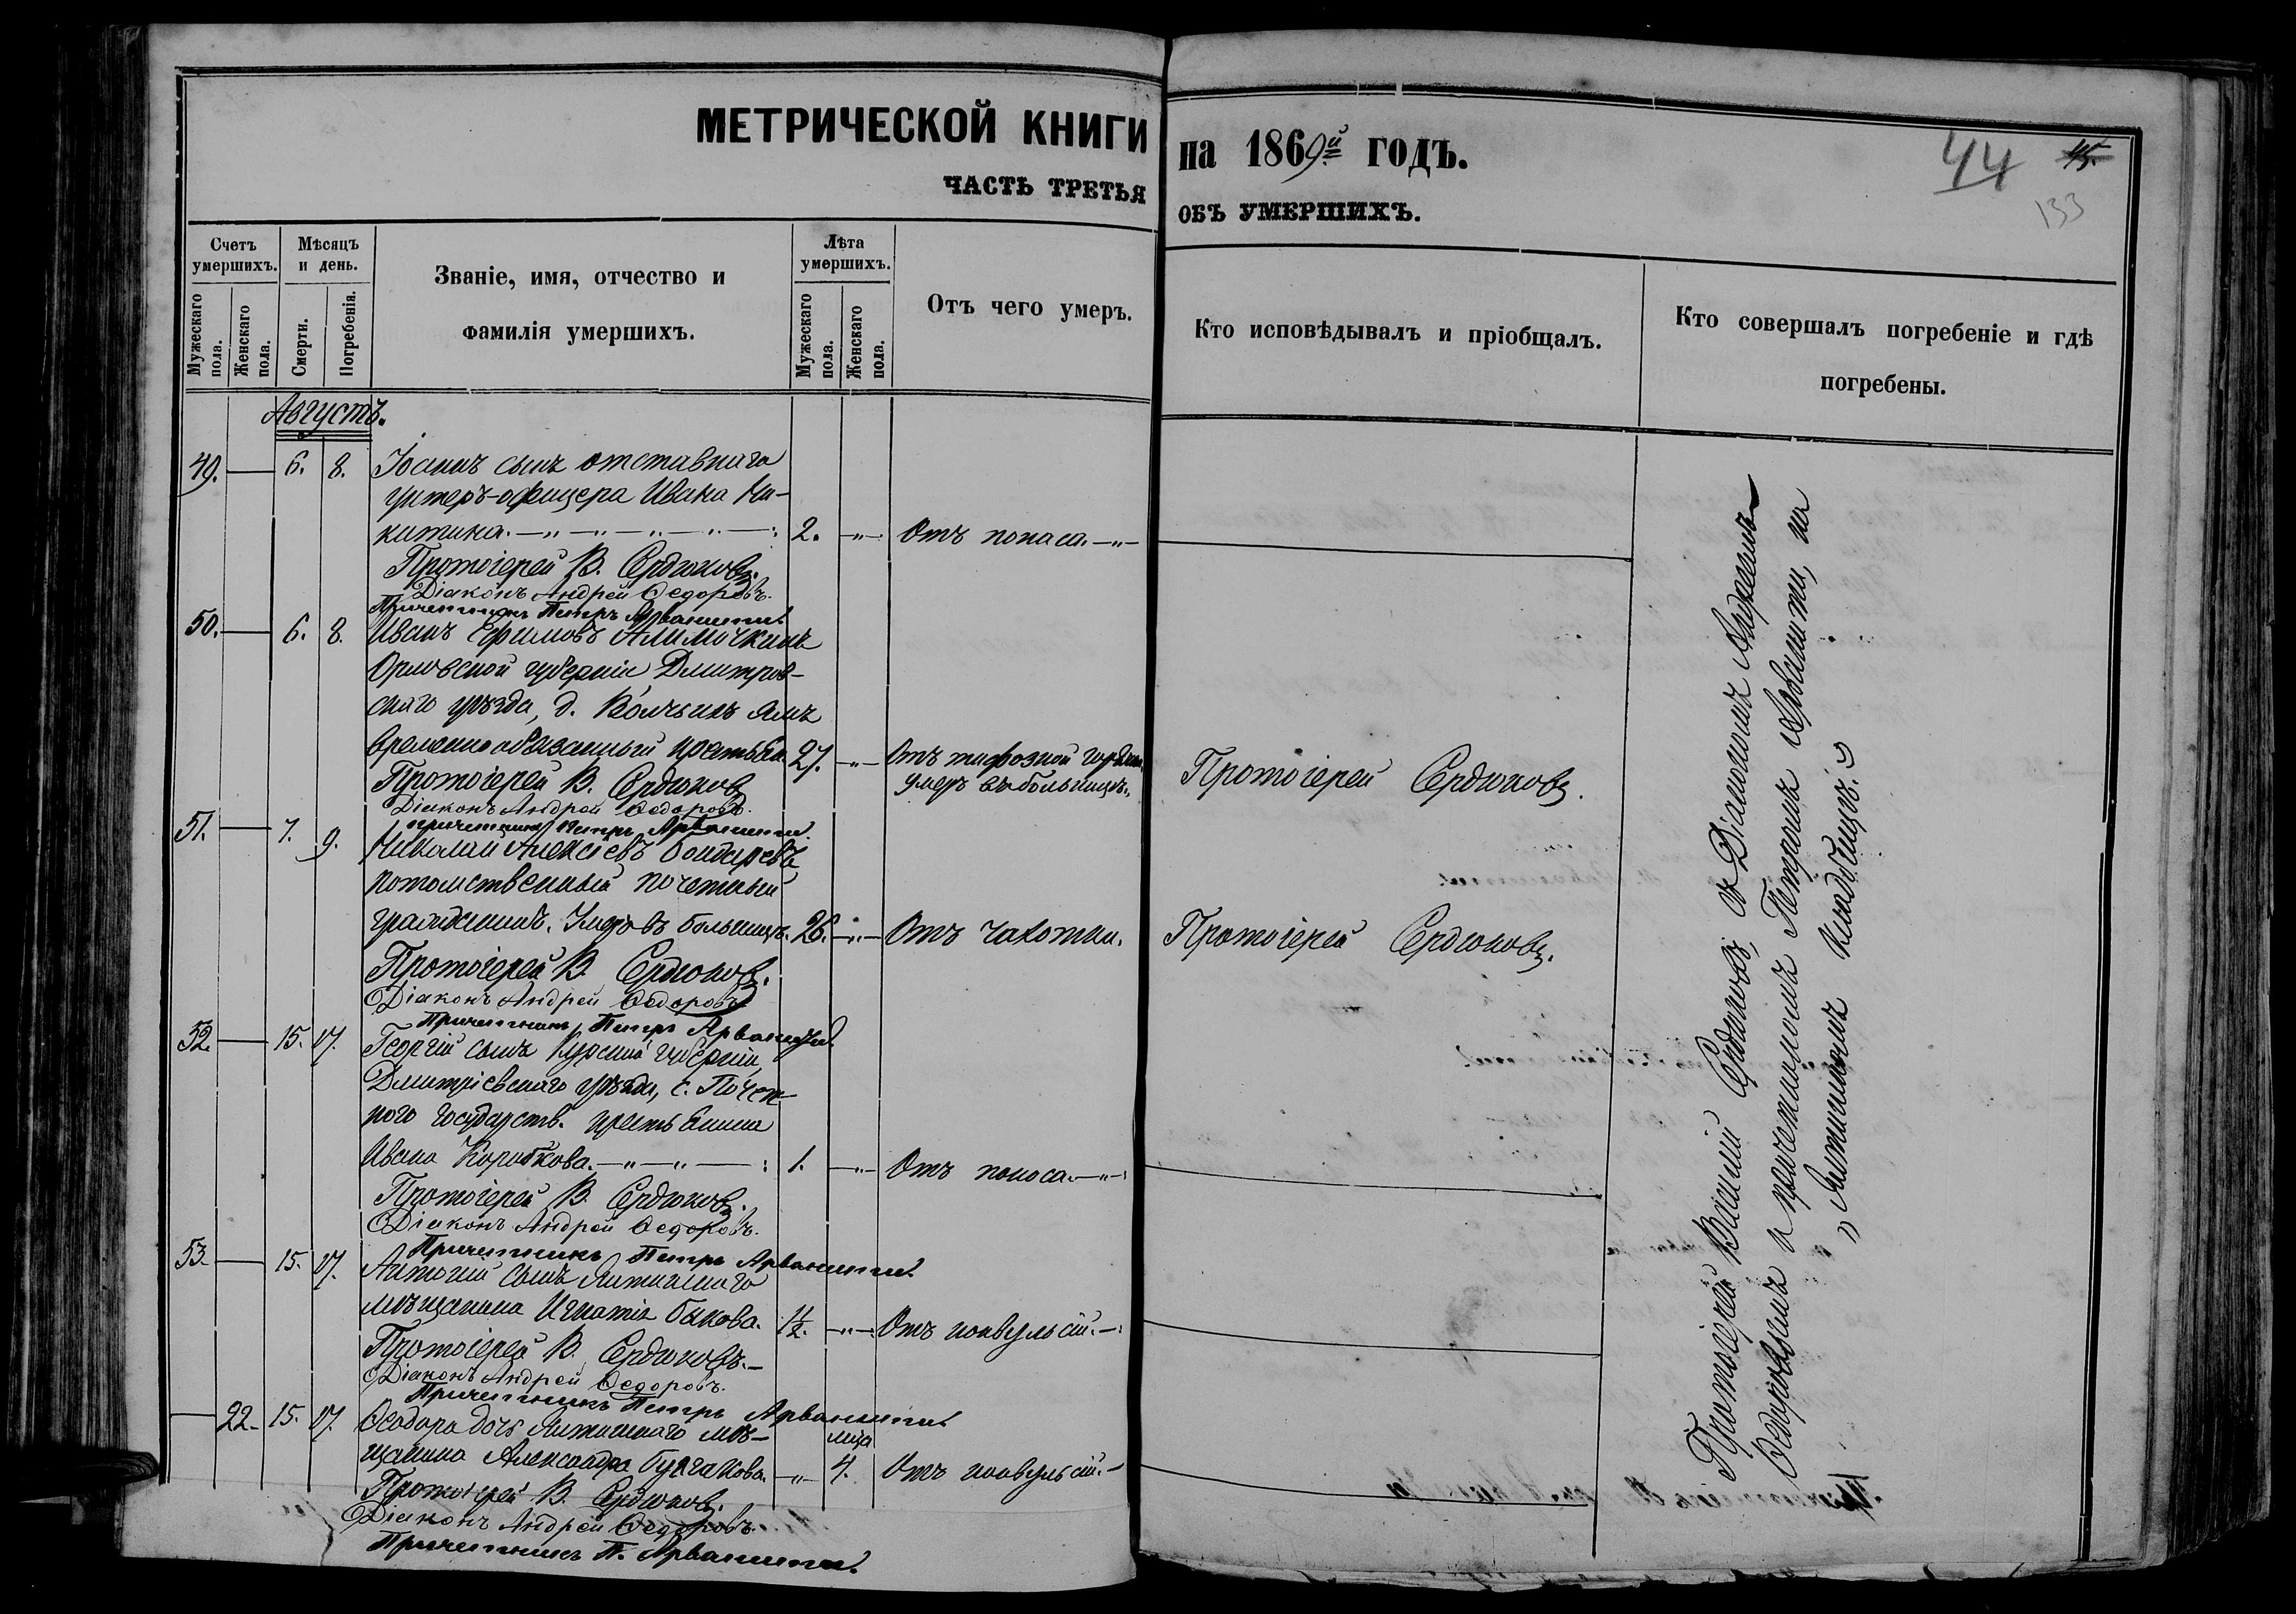 МЕТРИЧЕСКОЙ КНИГИ на 1869й ГОДЪ.
44 45.
133
ЧАСТЬ ТРЕТЬЯ ОБЪ УМЕРШИХЪ.
Счетъ умершихъ.
Мужескаго пола.
Женскаго пола.
Мѣсяцъ и день.
Смерти.
Погребенія.
Званіе, имя, отчество и
фамилія умершихъ.
Лѣта умершихъ.
Мужескаго пола.
Женскаго пола.
Отъ чего умеръ.
Кто исповѣдывалъ и пріобщалъ.
Кто совершалъ погребеніе и гдѣ
погребены.
Августъ.
49. 6. 8. Іоаннъ сынъ отставнаго
унтеръ-офицера Ивана Ни-
китина. 2. Отъ поноса.
Протоіерей В. Сердюковъ.
Діаконъ Андрей Ѳедоровъ.
Причетникъ Петръ Арванити.
50. 6. 8. Иванъ Ефимовъ Алимочкинъ
Орловской губерніи Дмитров-
скаго уѣзда, д. Волчьихъ Ямъ
временнообязанный крестьян. 27. Отъ тифозной горячки
умеръ въ больницѣ. Протоіерей Сердюковъ.
Протоіерей В. Сердюковъ
Діаконъ Андрей Ѳедоровъ.
Причетникъ Петръ Арванити.
51. 7. 9. Николай Алексѣевъ Бондаревъ
потомственный почетный
гражданинъ. Умеръ въ больницѣ. 26. Отъ чахотки. Протоіерей Сердюковъ.
Протоіерей В. Сердюковъ.
Діаконъ Андрей Ѳедоровъ
Причетникъ Петръ Арванити.
52. 15. 17. Георгій сынъ Курской губерніи,
Дмитріевскаго уѣзда, с.
государств. крестьянина
Ивана Коробкова. 1. Отъ поноса.
Протоіерей В. Сердюковъ.
Діаконъ Андрей Ѳедоровъ.
Причетникъ Петръ Арванити.
53. 15. 17. Антоній сынъ Ялтинскаго
мѣщанина Игнатія Быкова. 1½. Отъ конвульсій.
Протоіерей В. Сердюковъ.
Діаконъ Андрей Ѳедоровъ.
Причетникъ Петръ Арванити.
22. 15. 17. Ѳеодора дочь Ялтинскаго мѣ-
щанина Александра Булгакова. мѣс. 4. Отъ конвульсій.
Протоіерей В. Сердюковъ.
Діаконъ Андрей Ѳедоровъ.
Причетникъ П. Арванити.
Протоіерей Василій Сердюковъ, съ Діакономъ Андреемъ
Ѳедоровымъ и причетникомъ Петромъ Арванити, на
„Ялтинскомъ кладбищѣ.„